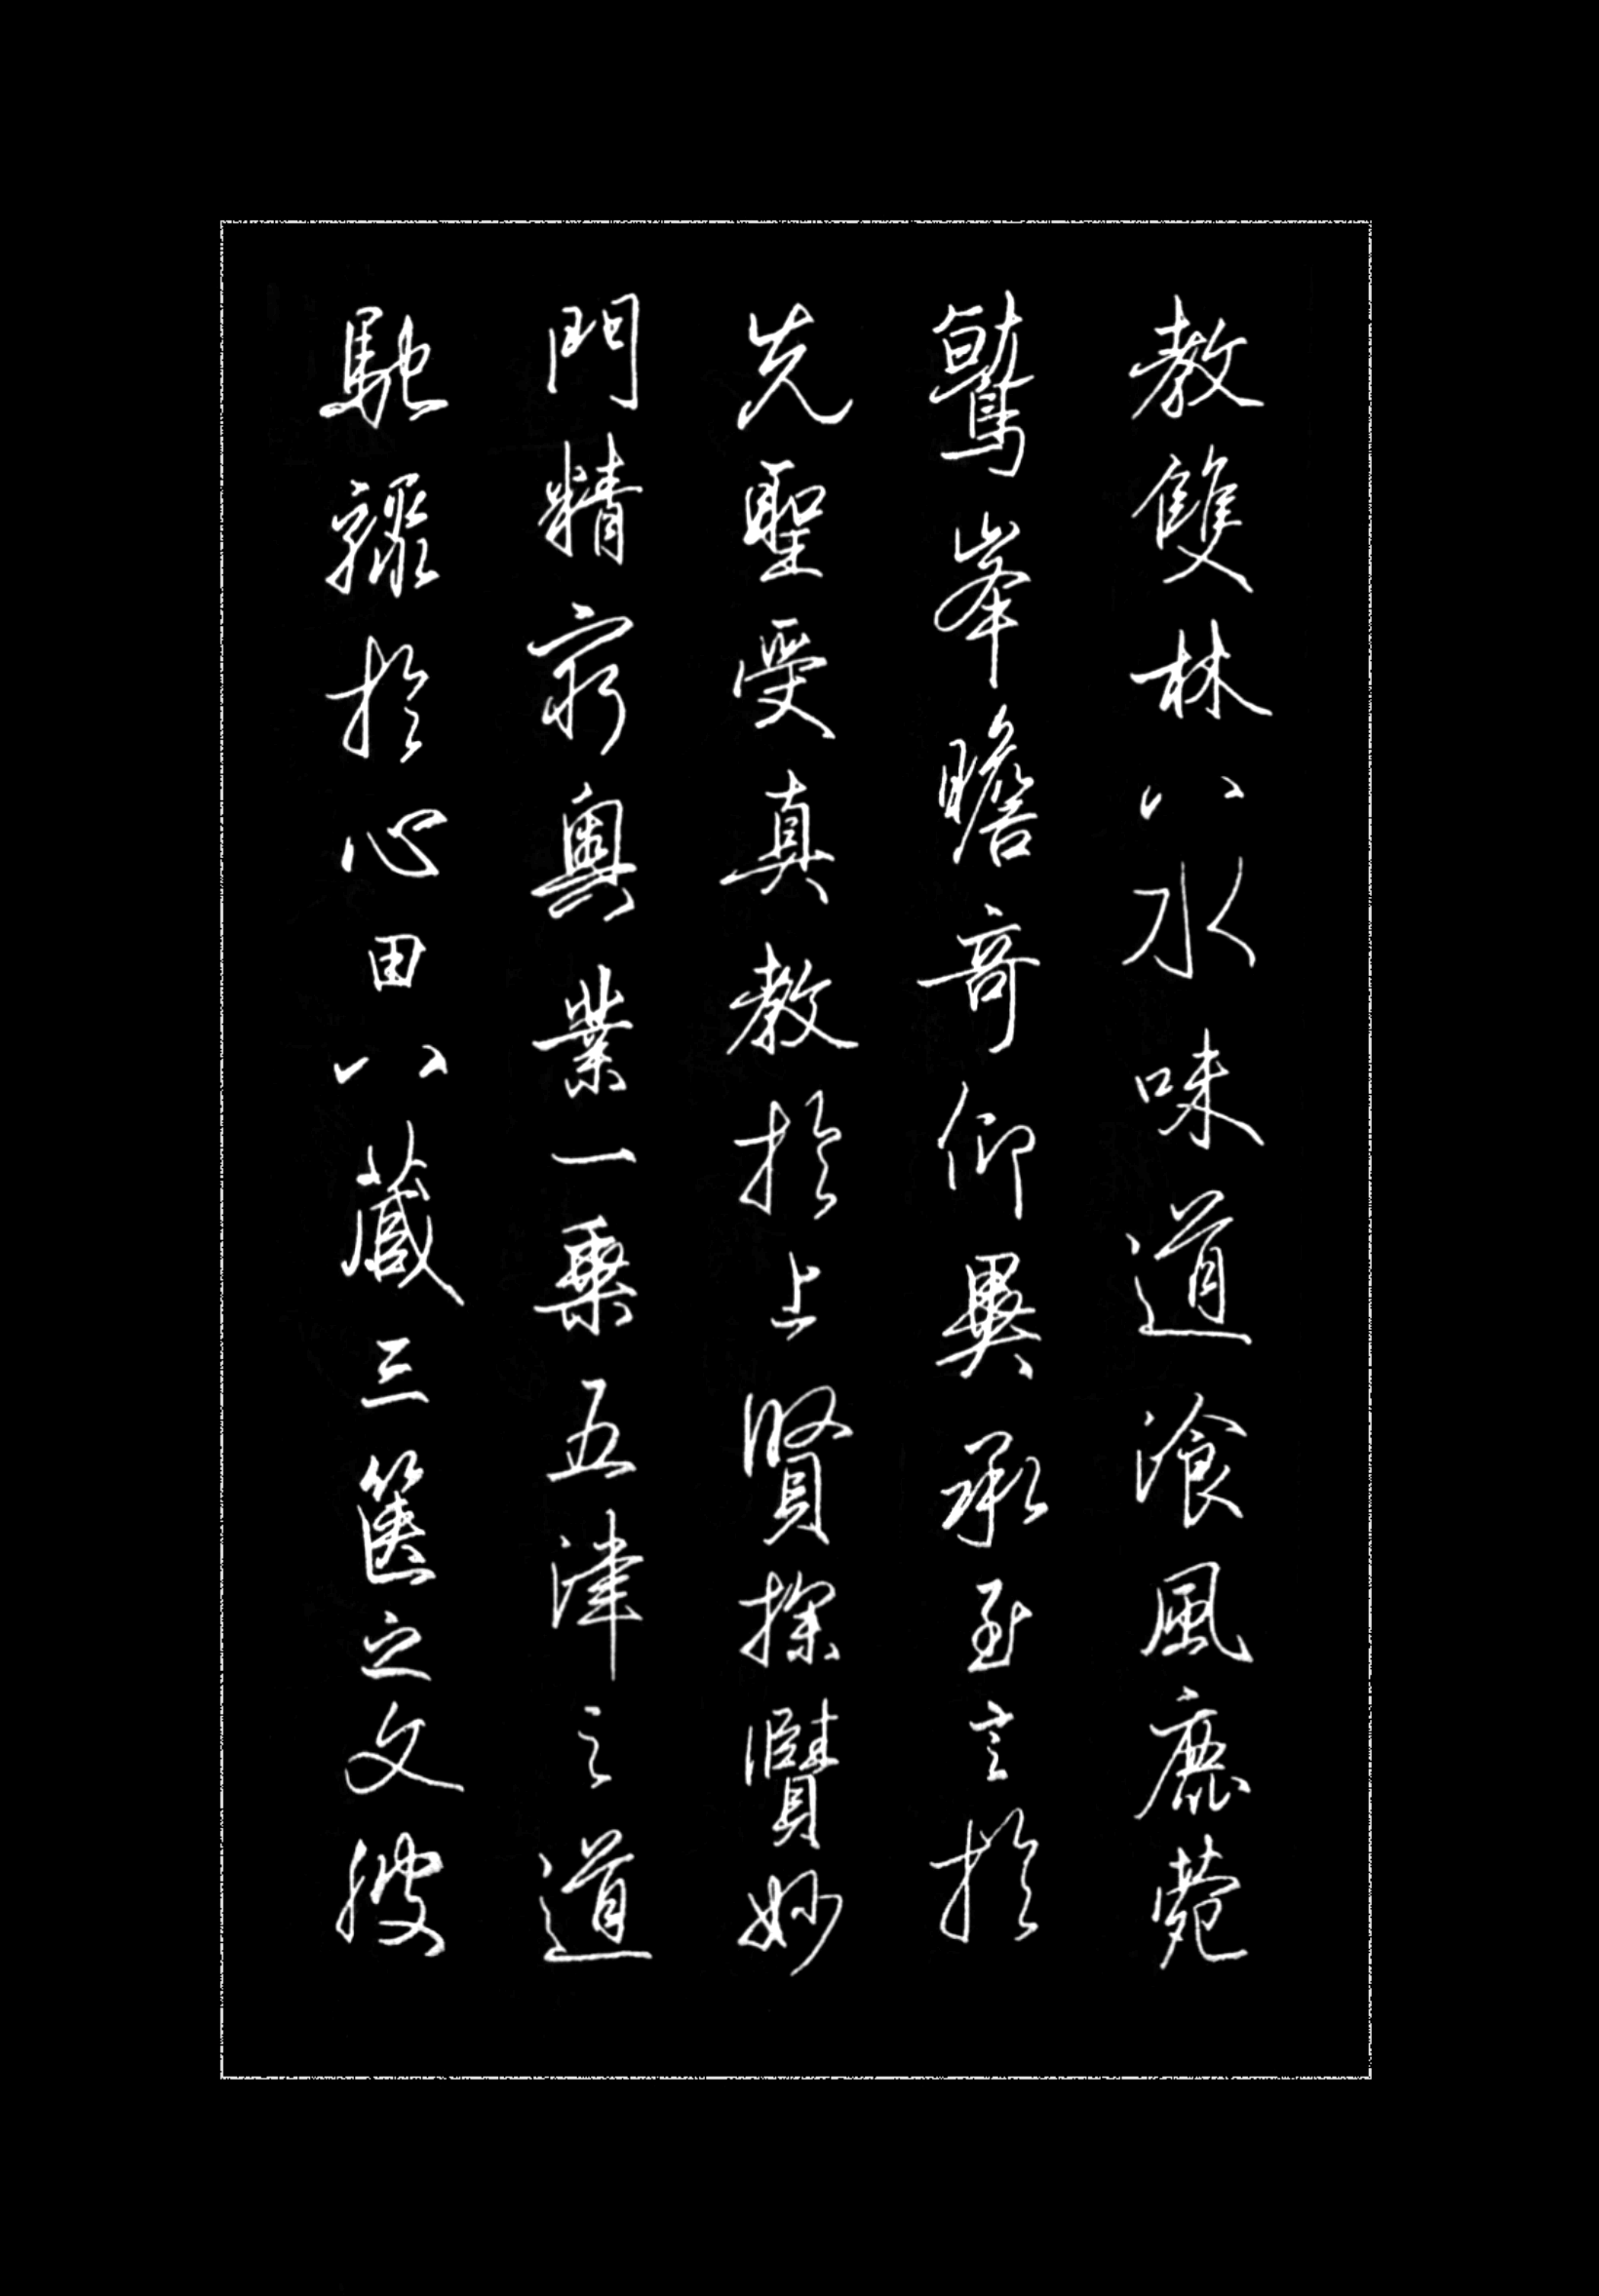 教雙林八水味道飡風鹿菀
鷲峯瞻奇仰異承至言於
先聖受真教於上賢探賾妙
門精窮奧業一乘五律之道
馳驟於心田八藏三篋之文波